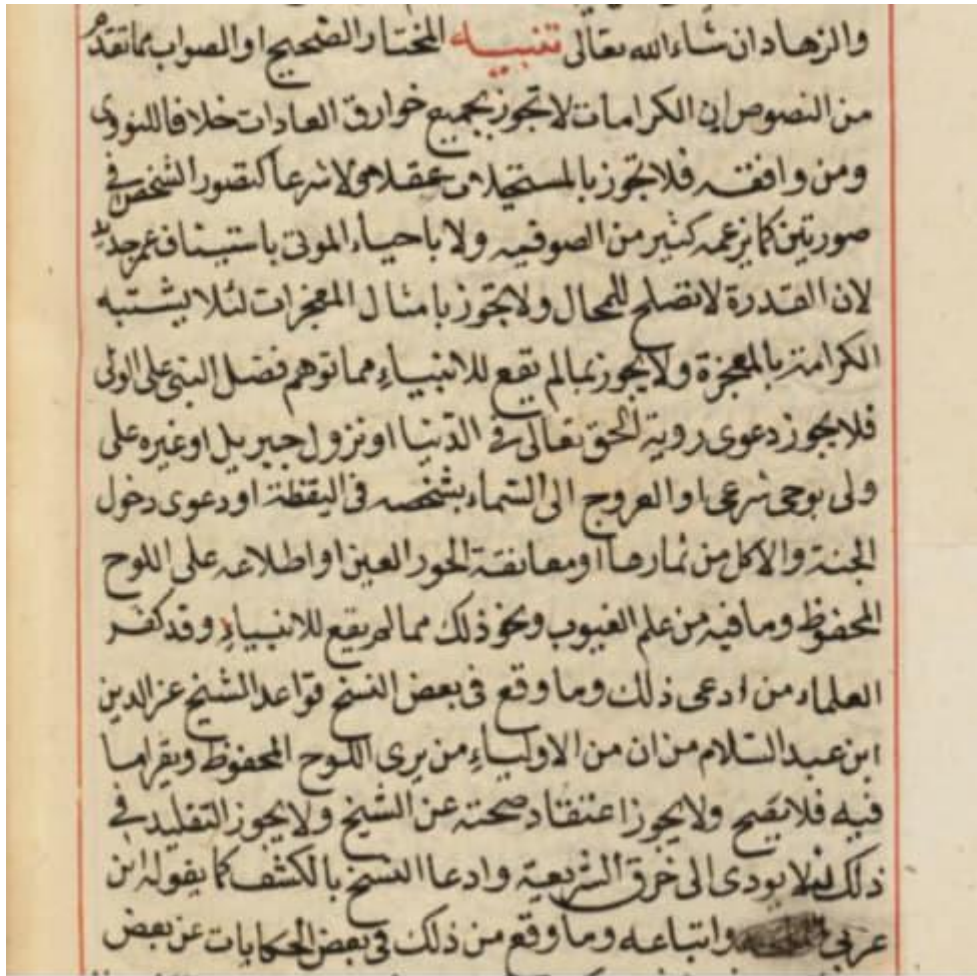 والزهاد ان شاء الله تعالى تنبيه المختار الصحيح او الصواب مما تقدم
من النصوص ان الكرامات لا تجوز بجميع خوارق العادات خلافا للنووى
ومن وافقه فلا تجوز بالمستحيلات عقلا لا شرعا كتصور الشخص في
صورتين كما يزعمه كثير من الصوفيه ولا باحياء الموتى باستيناف عمر جديد
لان القدرة لا تصلح للمحال ولا تجوز بامثال المعجزات لئلا يشتبه
الكرامة بالمعجزة ولا يجوز بما لم يقع للانبياء مما توهم فضل النبى على الولى
فلا يجوز دعوى روية الحق تعالى في الدنيا او نزول جبريل او غيره على
ولى بوحى شرعى او العروج الى السماء بشخصه في اليقظة او دعوى دخول
الجنة والاكل من ثمارها او معانقة الحور العين او اطلاعه على اللوح
المحفوظ وما فيه من علم الغيوب ونحو ذلك مما لم يقع للانبياء وقد كفر
العلماء من ادعى ذلك وما وقع فى بعض النسخ قواعد الشيخ عز الدين
ابن عبد السلام من ان من الاولياء من يرى اللوح المحفوظ ويقرا ما
فيه فلا يصح ولا يجوز اعتقاد صحته عن الشيخ ولا يجوز التقليد في
ذلك ليلا يودى الى خرق الشريعة وادعا النسخ بالكشف كما يقوله ابن
عربى واتباعه وما وقع من ذلك في بعض الحكايات عن بعض